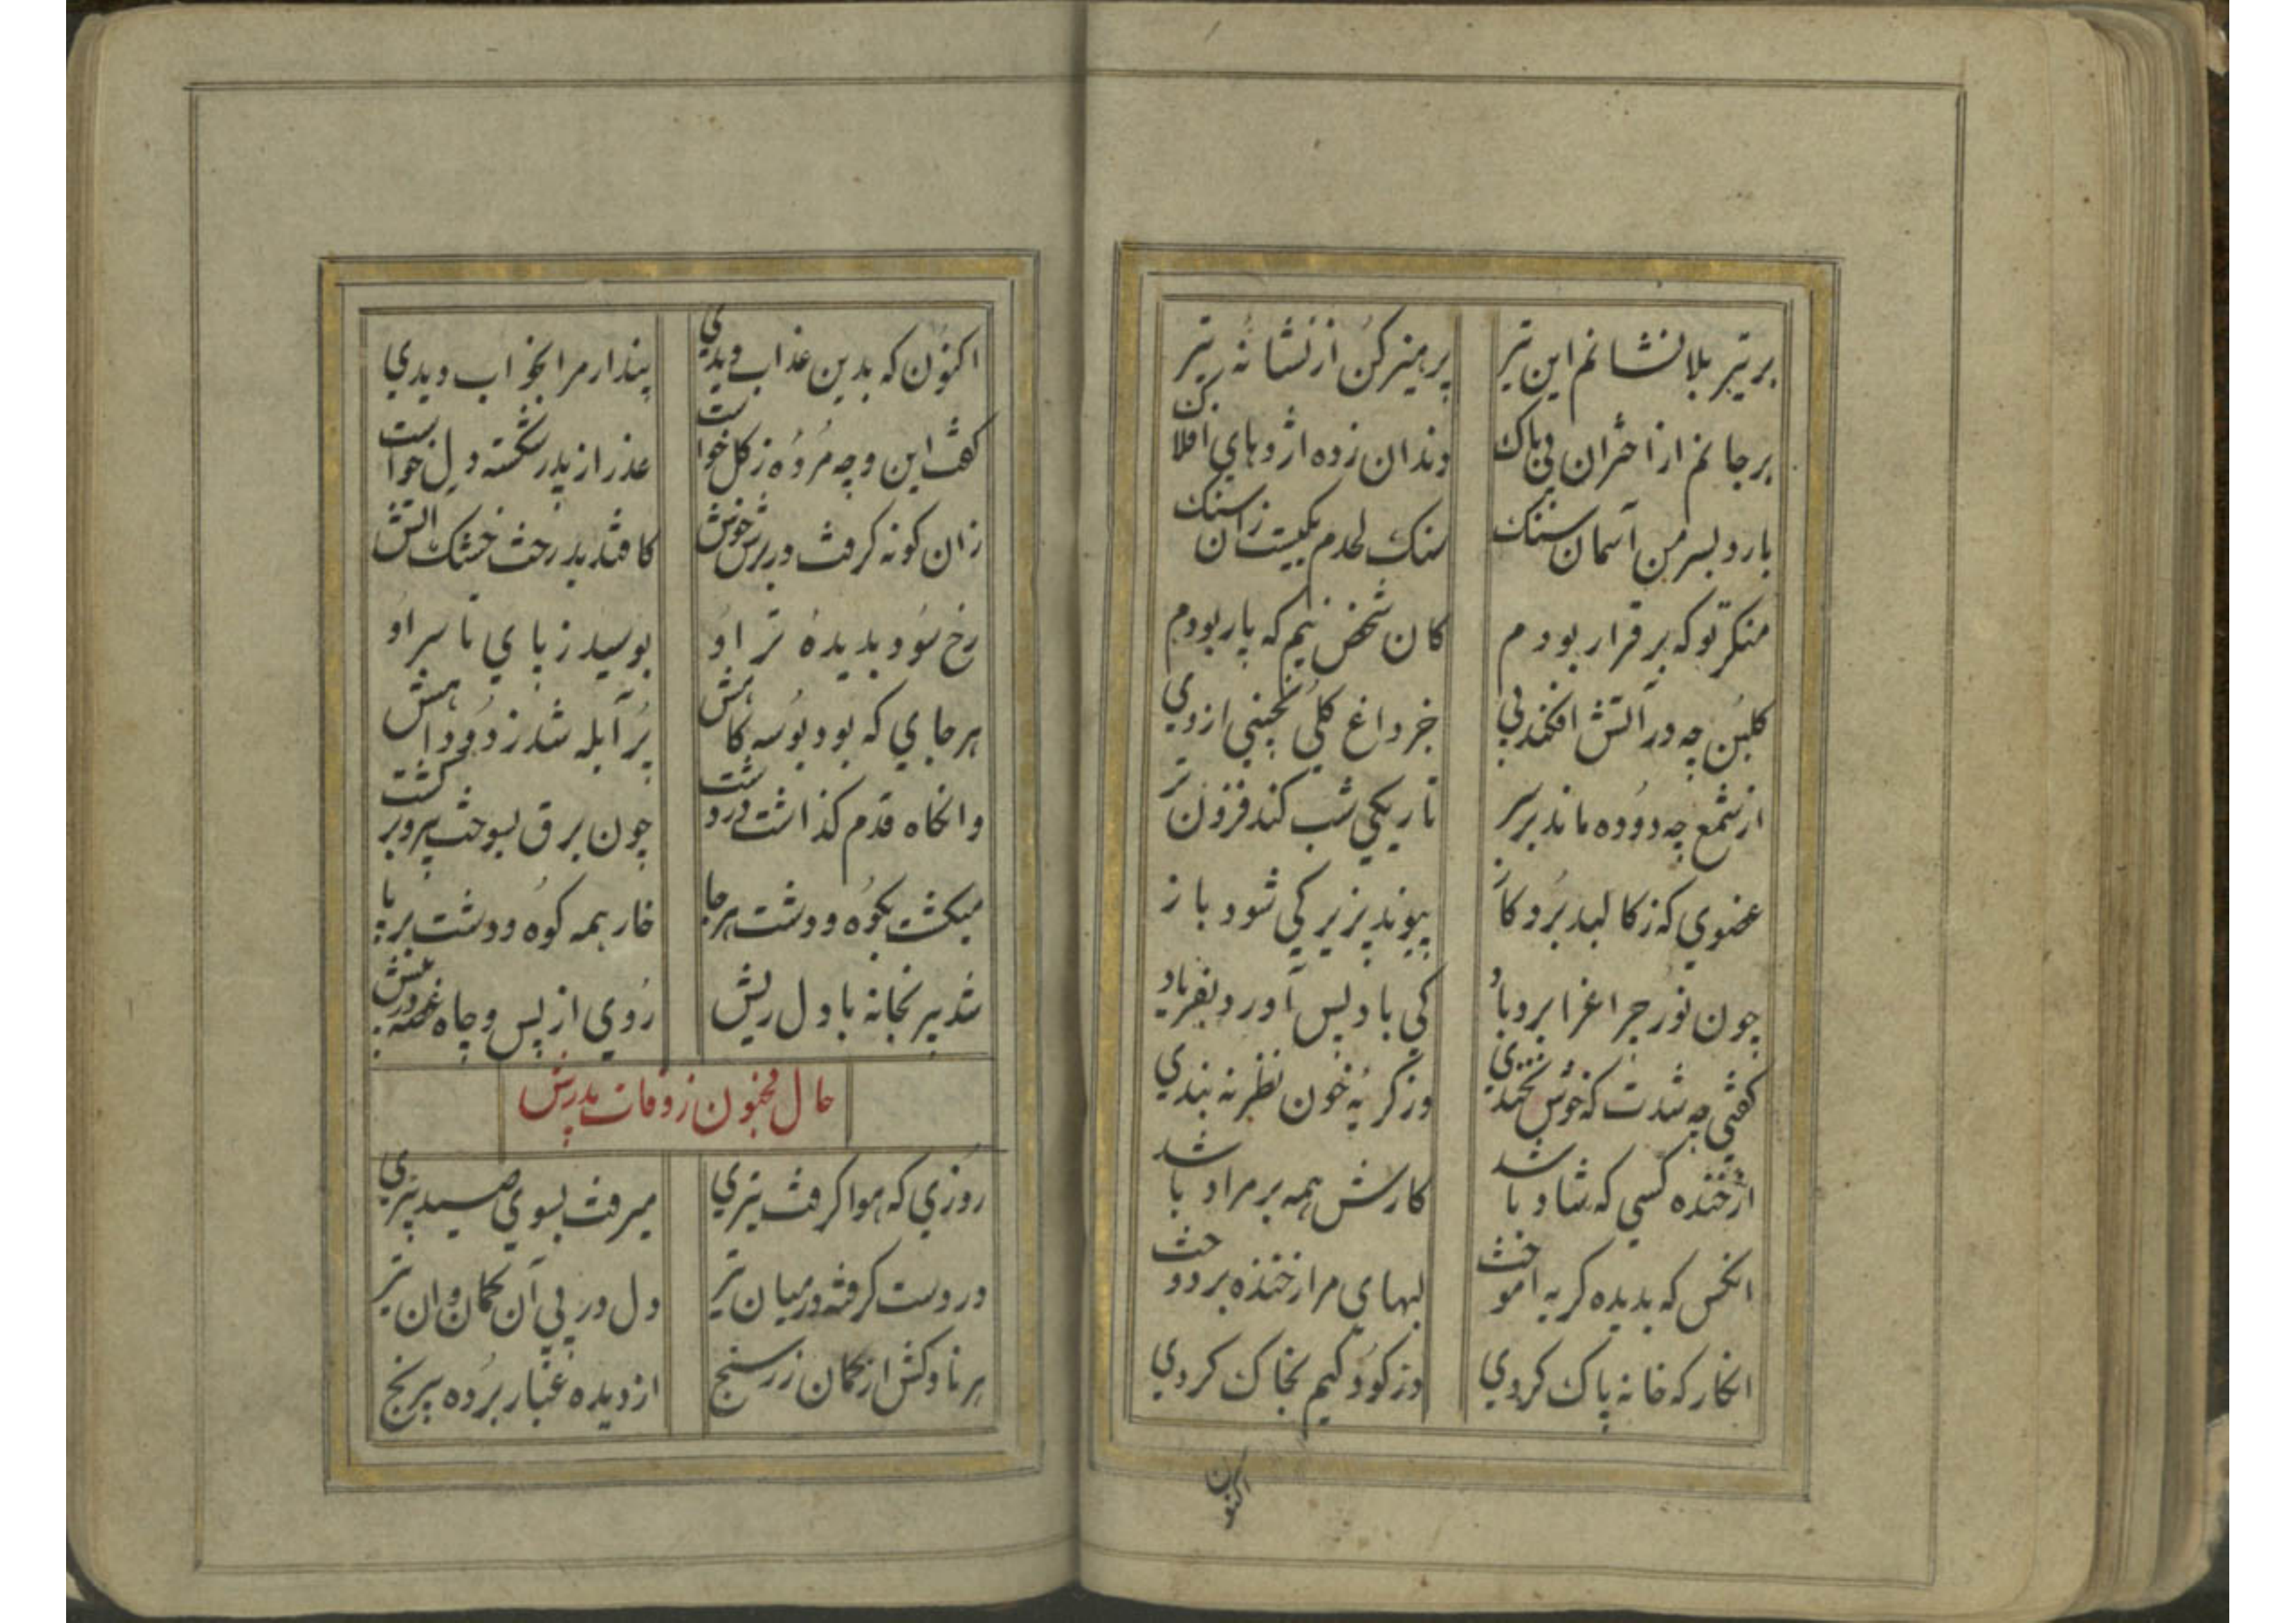 بر تیر بلا نشانم این تیر پرهیز کن از نشانه تیر
بر جانم از اختران بی باک دندان زده اژدهای افلاک
بارد بسر من آسمان سنک سنک لحدم یکیست زان سنک
منکر تو که بر قرار بودم کان شخص نیم که پار بودم
کلبن چه در آتش افکند بی جز داغ کلی نچینی از وی
از شمع چه دوده ماند بر سر تاریکی شب کند فزون تر
عضوی که ز کالبد برد کاز پیوند پزیر کی شود باز
چون نور چراغ را برد باد کی باد پس آورد بفریاد
کفتی چه شدت که خوش نخندی وز کریه خون نظر نه بندی
از خنده کسی که شاد باشد کارش همه بر مراد باشد
انکس که بدیده کریه آموخت لبهای مرا ز خنده بر دوخت
انکار که خانه پاک کردی وز کودکیم بخاک کردی
اکنون
اکنون که بدین عذاب دیدی پندار مرا بخواب دیدی
کفت این و چه مرده ز کل خواست عذر از پدر شکسته دل خواست
زان کونه کرفت در برش خوش کافتد بدرخت خشک آتش
رخ سود بدیده تر او بوسید ز پای تا سر او
هر جای که بود بوسه کاهش پر آبله شد ز دود آهش
وانکاه قدم کذاشت در دشت چون برق بسوخت هر و بر کشت
میکشت بکوه و دشت هر جا خار همه کوه و دشت بر پا
شد پیر بخانه با دل ریش روی از پس و چاه غصه در پیش
حال مجنون ز وفات پدرش
روزی که هوا کرفت تیزی میرفت بسوی صید تیزی
در دست کرفته در میان تیر دل در پی آن کمان و آن تیر
هر ناوکش از کمان زر سنج از دیده غبار برده بیرنج